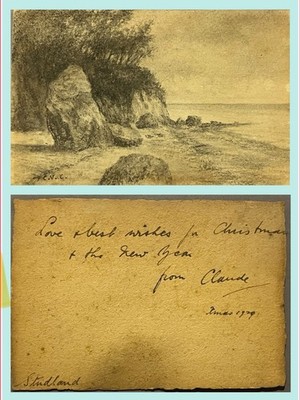 Love & best wishes for Christmas
& the New Year
from Claude
Xmas 1929.
Studland